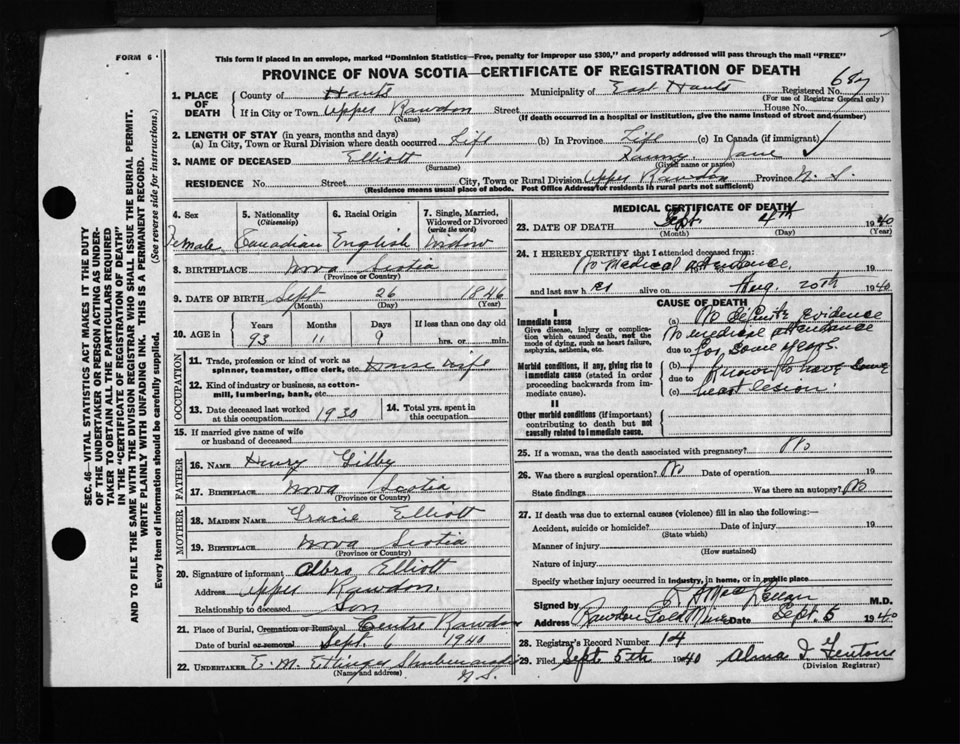 FORM 6
This form if placed in an envelope, marked "Dominion Statistics—Free, penalty for improper use $300," and properly addressed will pass through the mail "FREE"
PROVINCE OF NOVA SCOTIA—CERTIFICATE OF REGISTRATION OF DEATH
SEC. 46—VITAL STATISTICS ACT MAKES IT THE DUTY
OF THE UNDERTAKER OR PERSON ACTING AS UNDER-
TAKER TO OBTAIN ALL THE PARTICULARS REQUIRED
IN THE "CERTIFICATE OF REGISTRATION OF DEATH"
AND TO FILE THE SAME WITH THE DIVISION REGISTRAR WHO SHALL ISSUE THE BURIAL PERMIT.
WRITE PLAINLY WITH UNFADING INK. THIS IS A PERMANENT RECORD.
Every item of information should be carefully supplied. (See reverse side for instructions.)
1. PLACE OF DEATH County of Hants Municipality of East Hants Registered No. 687
(For use of Registrar General only)
If in City or Town Upper Rawdon Street House No.
(Name) (If death occurred in a hospital or institution, give the name instead of street and number)
2. LENGTH OF STAY (in years, months and days)
(a) In City, Town or Rural Division where death occurred Life (b) In Province Life (c) In Canada (if immigrant)
3. NAME OF DECEASED Elliott Jane
(Surname) (Given name or names)
RESIDENCE No. Street City, Town or Rural Division Upper Rawdon Province N. S.
(Residence means usual place of abode. Post Office Address for residents in rural parts not sufficient)
4. Sex 5. Nationality (Citizenship) 6. Racial Origin 7. Single, Married, Widowed or Divorced (write the word)
Female Canadian English Widow
8. BIRTHPLACE Nova Scotia
(Province or Country)
9. DATE OF BIRTH Sept 26 1846
(Month) (Day) (Year)
10. AGE in Years Months Days If less than one day old
93 11 9 hrs. or min.
OCCUPATION
11. Trade, profession or kind of work as spinner, teamster, office clerk, etc. House wife
12. Kind of industry or business, as cotton-mill, lumbering, bank, etc.
13. Date deceased last worked at this occupation 1930 14. Total yrs. spent in this occupation
15. If married give name of wife or husband of deceased
FATHER
16. NAME Henry Gilby
17. BIRTHPLACE Nova Scotia
(Province or Country)
MOTHER
18. MAIDEN NAME Gracie Elliott
19. BIRTHPLACE Nova Scotia
(Province or Country)
20. Signature of informant Albro Elliott
Address Upper Rawdon.
Relationship to deceased Son
21. Place of Burial, Cremation or Removal Centre Rawdon
Date of burial or removal Sept. 6 1940
22. UNDERTAKER E. M. Ettinger Shubenacadie
(Name and address) N. S.
MEDICAL CERTIFICATE OF DEATH
23. DATE OF DEATH Sept. 4th 1940
(Month) (Day) (Year)
24. I HEREBY CERTIFY that I attended deceased from:
No medical attendance. 19
and last saw her alive on Aug. 20th 1940
CAUSE OF DEATH
I
Immediate cause
Give disease, injury or complication which caused death, not the mode of dying, such as heart failure, asphyxia, asthenia, etc.
Morbid conditions, if any, giving rise to immediate cause (stated in order proceeding backwards from immediate cause).
II
Other morbid conditions (if important) contributing to death but not causally related to immediate cause.
(a) No definite evidence
No medical attendance
due to for some years.
(b) Known to have some
due to
(c) heart lesion.
25. If a woman, was the death associated with pregnancy? No
26. Was there a surgical operation? No Date of operation 19
State findings Was there an autopsy? No
27. If death was due to external causes (violence) fill in also the following:—
Accident, suicide or homicide? Date of injury 19
(State which)
Manner of injury
(How sustained)
Nature of injury
Specify whether injury occurred in industry, in home, or in public place
Signed by R A MacLellan M.D.
Address Rawdon Gold Mines Date Sept. 5 1940
28. Registrar's Record Number 104
29. Filed Sept 5th 1940 Alma I. Fenton
(Division Registrar)